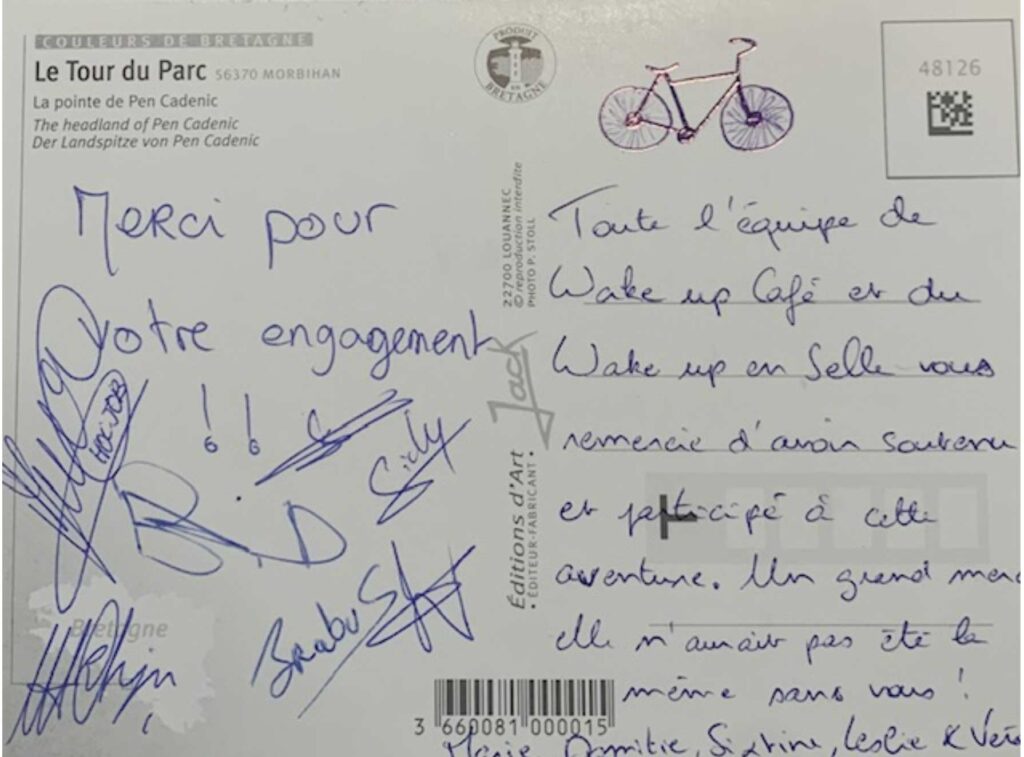 COULEURS DE BRETAGNE
Le Tour du Parc 56370 MORBIHAN
La pointe de Pen Cadenic
The headland of Pen Cadenic
Der Landspitze von Pen Cadenic
PRODUIT EN BRETAGNE
48126
Merci pour
votre engagement
!!
HOC JOB
Sidy
R.D
Brabu
Bretagne
22700 LOUANNEC
© reproduction interdite
PHOTO P. STOLL
Jack
Éditions d'Art
• ÉDITEUR-FABRICANT •
Toute l'équipe de
Wake up Café et du
Wake up en Selle vous
remercie d'avoir soutenu
et participé à cette
aventure. Un grand merc
elle n'aurait pas été la
même sans vous !
Marie, Domitie, Sixtine, Leslie & Vér
3 660081 000015